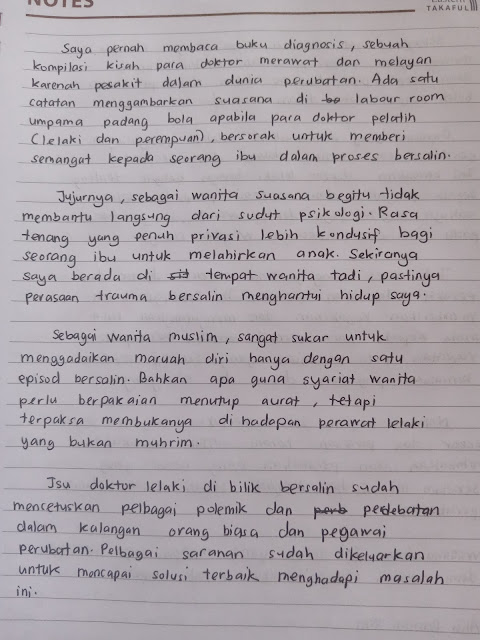 NOTES
TAKAFUL
Saya pernah membaca buku diagnosis, sebuah
kompilasi kisah para doktor merawat dan melayan
karenah pesakit dalam dunia perubatan. Ada satu
catatan menggambarkan suasana di labour room
umpama padang bola apabila para doktor pelatih
(lelaki dan perempuan), bersorak untuk memberi
semangat kepada seorang ibu dalam proses bersalin.
Jujurnya, sebagai wanita suasana begitu tidak
membantu langsung dari sudut psikologi. Rasa
tenang yang penuh privasi lebih kondusif bagi
seorang ibu untuk melahirkan anak. Sekiranya
saya berada di tempat wanita tadi, pastinya
perasaan trauma bersalin menghantui hidup saya.
Sebagai wanita muslim, sangat sukar untuk
menggadaikan maruah diri hanya dengan satu
episod bersalin. Bahkan apa guna syariat wanita
perlu berpakaian menutup aurat, tetapi
terpaksa membukanya di hadapan perawat lelaki
yang bukan muhrim.
Isu doktor lelaki di bilik bersalin sudah
mencetuskan pelbagai polemik dan perdebatan
dalam kalangan orang biasa dan pegawai
perubatan. Pelbagai saranan sudah dikeluarkan
untuk mencapai solusi terbaik menghadapi masalah
ini.